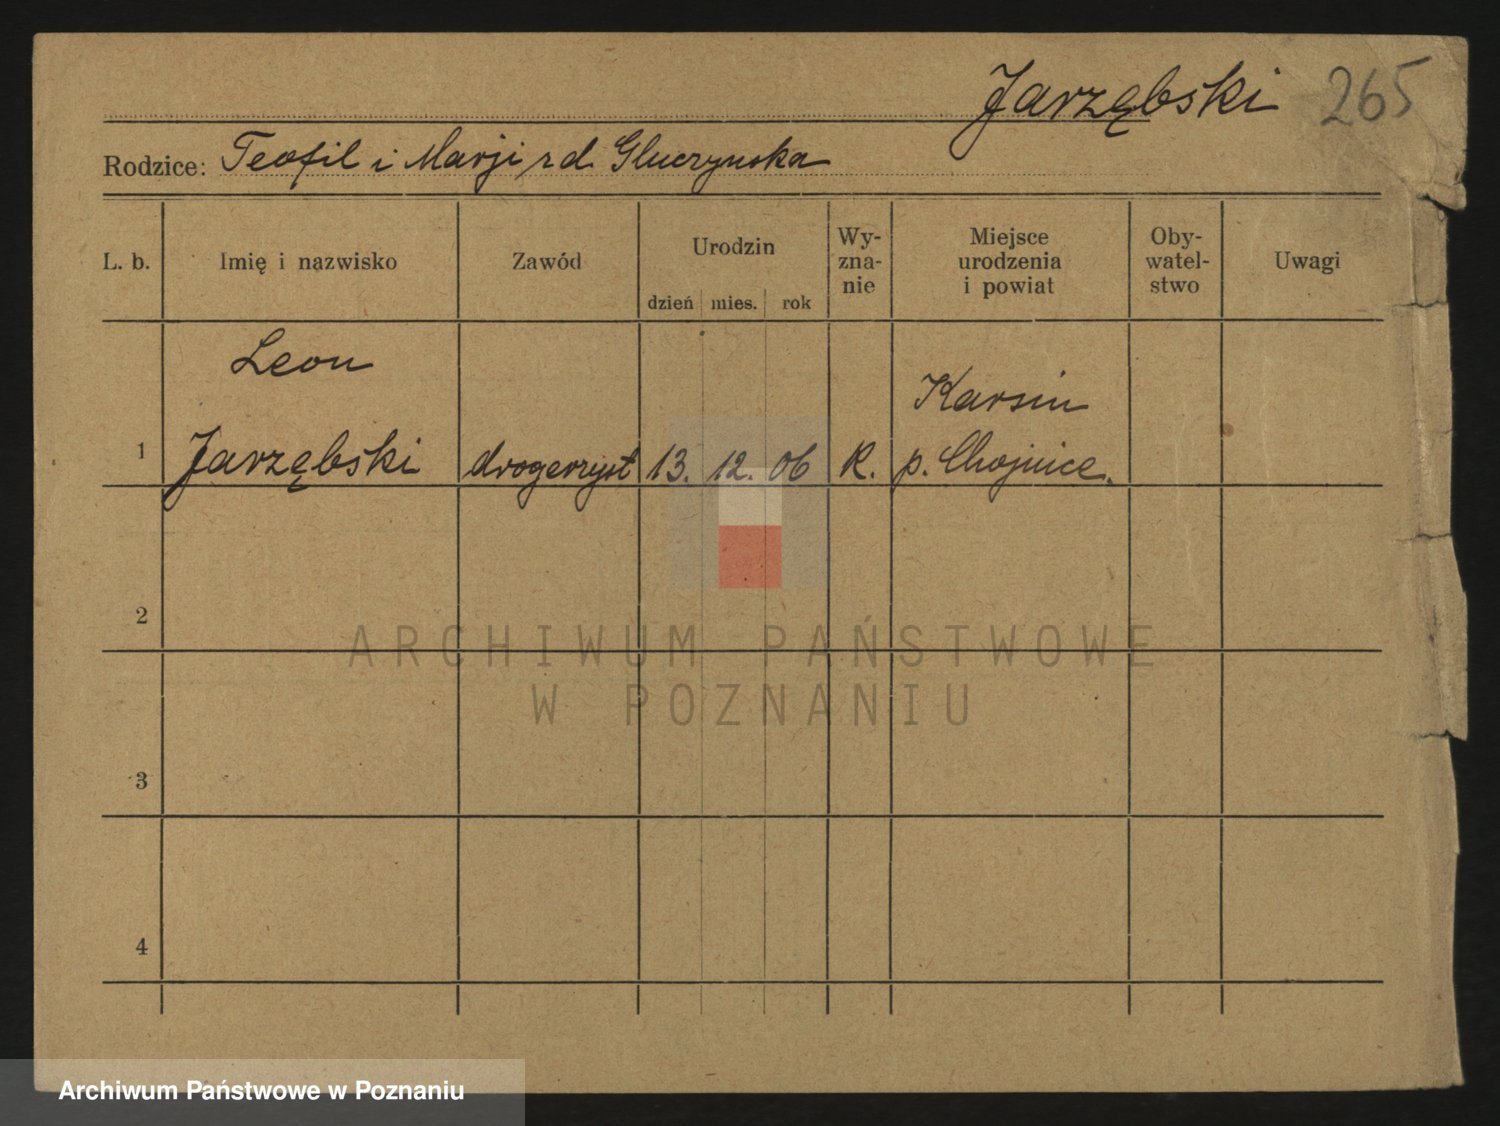 Jarzębski 265
Rodzice: Teofil i Marji rd. Gluczynska
L. b. Imię i nazwisko Zawód Urodzin Wy- Miejsce Oby- Uwagi
zna- urodzenia watel-
nie i powiat stwo
dzień mies. rok
Leon
Karsin
1 Jarzębski drogerzyst 13. 12. 06 R. p. Chojnice.
2
ARCHIWUM PAŃSTWOWE
W POZNANIU
3
4
Archiwum Państwowe w Poznaniu